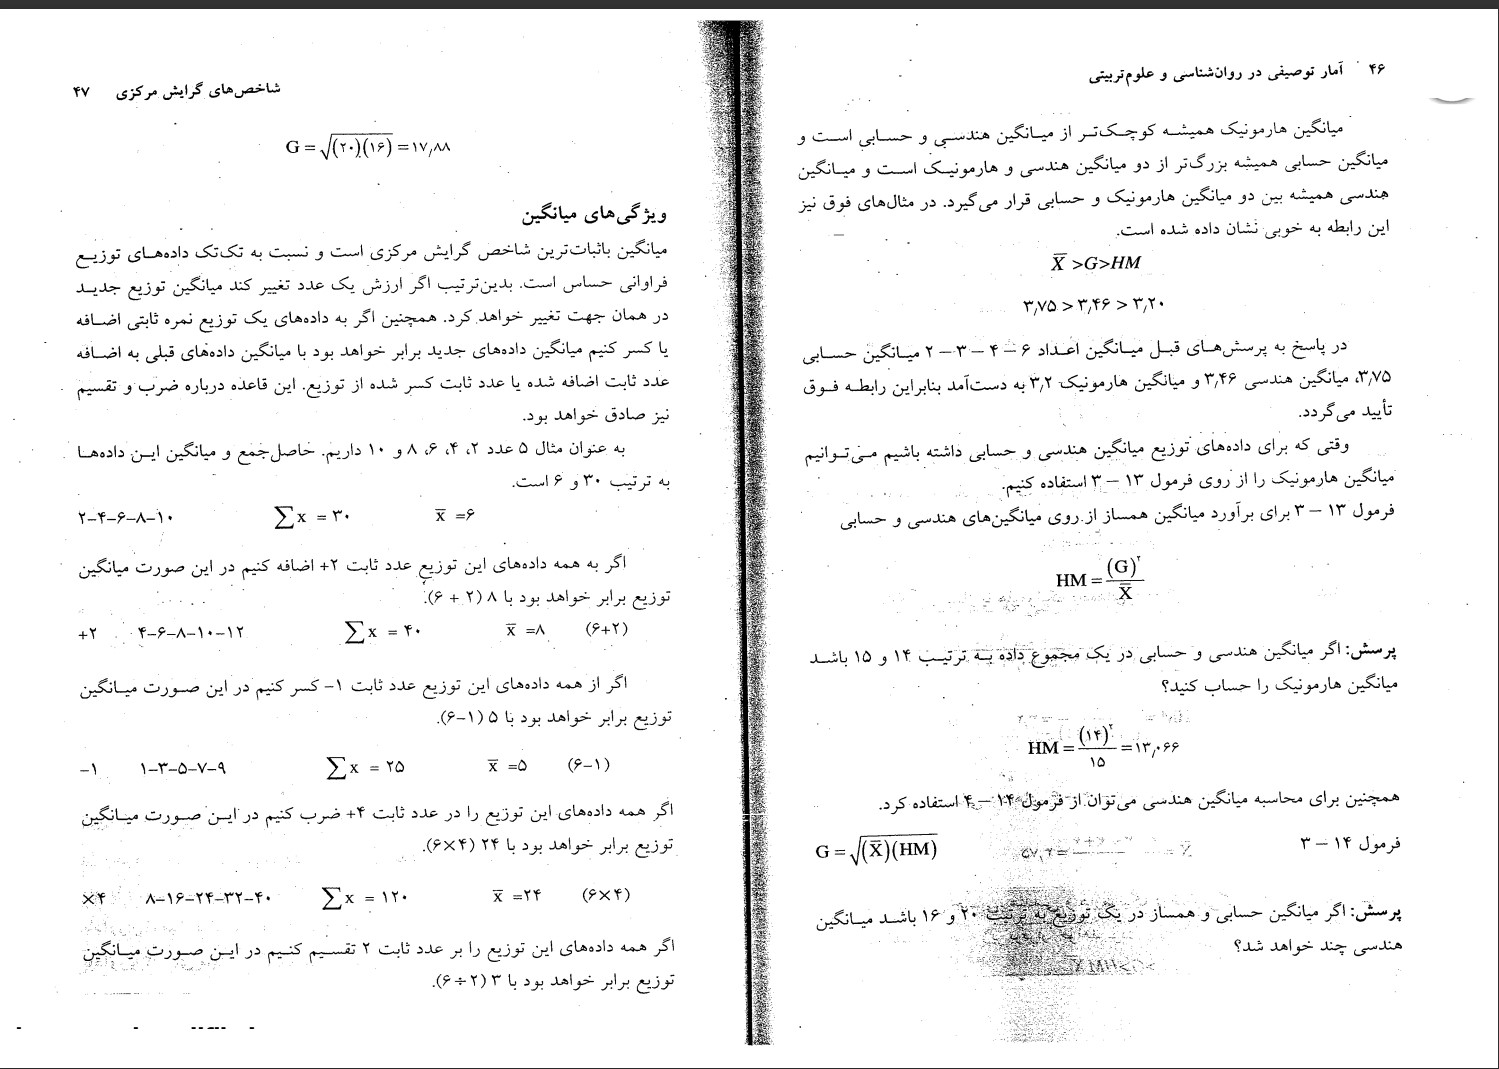 ۴۶ آمار توصیفی در روان‌شناسی و علوم‌تربیتی
میانگین هارمونیک همیشه کوچک‌تر از میانگین هندسی و حسابی است و
میانگین حسابی همیشه بزرگ‌تر از دو میانگین هندسی و هارمونیک است و میانگین
هندسی همیشه بین دو میانگین هارمونیک و حسابی قرار می‌گیرد. در مثال‌های فوق نیز
این رابطه به خوبی نشان داده شده است.
X̅ >G>HM
۳٫۷۵ > ۳٫۴۶ > ۳٫۲۰
در پاسخ به پرسش‌های قبل میانگین اعداد ۶ – ۴ – ۳ – ۲ میانگین حسابی
۳٫۷۵، میانگین هندسی ۳٫۴۶ و میانگین هارمونیک ۳٫۲ به دست‌آمد بنابراین رابطه فوق
تأیید می‌گردد.
وقتی که برای داده‌های توزیع میانگین هندسی و حسابی داشته باشیم می‌توانیم
میانگین هارمونیک را از روی فرمول ۱۳ – ۳ استفاده کنیم.
فرمول ۱۳ – ۳ برای برآورد میانگین همساز از روی میانگین‌های هندسی و حسابی
HM = (G)^۲ / X̅
پرسش: اگر میانگین هندسی و حسابی در یک مجموع داده به ترتیب ۱۴ و ۱۵ باشد
میانگین هارمونیک را حساب کنید؟
HM = (۱۴)^۲ / ۱۵ = ۱۳٫۰۶۶
همچنین برای محاسبه میانگین هندسی می‌توان از فرمول ۱۴ – ۴ استفاده کرد.
فرمول ۱۴ – ۳ G = √(X̅)(HM)
پرسش: اگر میانگین حسابی و همساز در یک توزیع به ترتیب ۲۰ و ۱۶ باشد میانگین
هندسی چند خواهد شد؟
شاخص‌های گرایش مرکزی ۴۷
G = √(۲۰)(۱۶) = ۱۷٫۸۸
ویژگی‌های میانگین
میانگین باثبات‌ترین شاخص گرایش مرکزی است و نسبت به تک‌تک داده‌های توزیع
فراوانی حساس است. بدین‌ترتیب اگر ارزش یک عدد تغییر کند میانگین توزیع جدید
در همان جهت تغییر خواهد کرد. همچنین اگر به داده‌های یک توزیع نمره ثابتی اضافه
یا کسر کنیم میانگین داده‌های جدید برابر خواهد بود با میانگین داده‌های قبلی به اضافه
عدد ثابت اضافه شده یا عدد ثابت کسر شده از توزیع. این قاعده درباره ضرب و تقسیم
نیز صادق خواهد بود.
به عنوان مثال ۵ عدد ۲، ۴، ۶، ۸ و ۱۰ داریم. حاصل‌جمع و میانگین این داده‌ها
به ترتیب ۳۰ و ۶ است.
۲–۴–۶–۸–۱۰ ∑x = ۳۰ x̅ =۶
اگر به همه داده‌های این توزیع عدد ثابت ۲+ اضافه کنیم در این صورت میانگین
توزیع برابر خواهد بود با ۸ (۲ + ۶).
+۲ ۴–۶–۸–۱۰–۱۲ ∑x = ۴۰ x̅ =۸ (۶+۲)
اگر از همه داده‌های این توزیع عدد ثابت ۱– کسر کنیم در این صورت میانگین
توزیع برابر خواهد بود با ۵ (۱–۶).
–۱ ۱–۳–۵–۷–۹ ∑x = ۲۵ x̅ =۵ (۶–۱)
اگر همه داده‌های این توزیع را در عدد ثابت ۴+ ضرب کنیم در این صورت میانگین
توزیع برابر خواهد بود با ۲۴ (۴×۶).
×۴ ۸–۱۶–۲۴–۳۲–۴۰ ∑x = ۱۲۰ x̅ =۲۴ (۶×۴)
اگر همه داده‌های این توزیع را بر عدد ثابت ۲ تقسیم کنیم در این صورت میانگین
توزیع برابر خواهد بود با ۳ (۲ ÷ ۶).